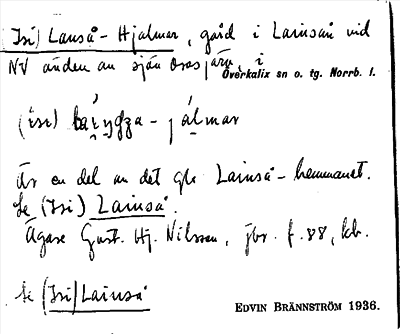 Isi) Lauså - Hjalmar, gård i Lainsån vid
NV änden av sjön Orasjärv, i
Överkalix sn o. tg. Norrb. l.
(isi)
är en del av det gla Lainså-hemmanet.
Se (Isi) Lainså.
Ägare Gust. Hj. Nilsson, jbr. f. 88, kb.
Se (Isi) Lainså
EDVIN BRÄNNSTRÖM 1936.